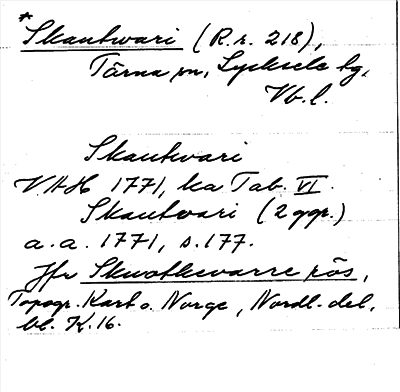 * Skautwari (R.r. 218),
Tärna sn, Lycksele lg,
Vb. l.
Skautwari
VAH 1771, ka Tab. VI.
Skautwari (2 ggr.)
a.a. 1771, s. 177.
Jfr Skwotkevarre rös,
Topogr. Kart o. Norge, Nordl. del,
bl. K.16.